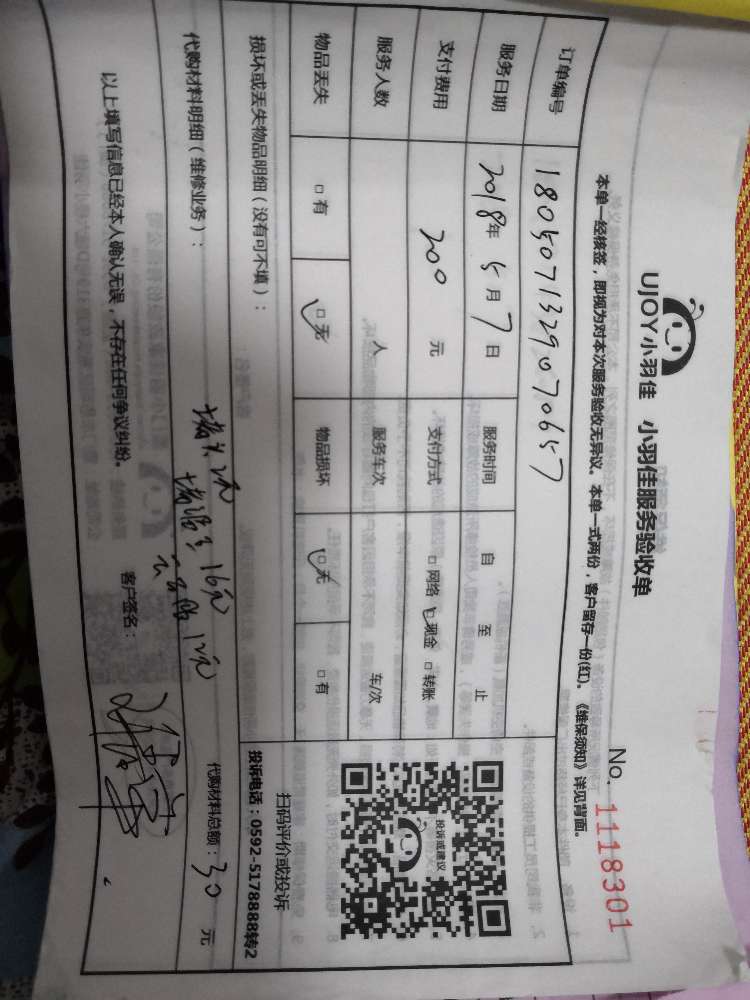 UJOY小羽佳 小羽佳服务验收单
No. 1118301
本单一经核签，即视为对本次服务验收无异议。本单一式两份，客户留存一份(红)。《维保须知》详见背面。
订单编号 1805071329070657
服务日期 2018年5月7日 服务时间 自 至 止
支付费用 200 元 支付方式 □网络 □现金 □转账
服务人数 人 服务车次 车/次
物品丢失 □有 □无 物品损坏 □无 □有
损坏或丢失物品明细（没有可不填）：
投诉或建议
扫码评价或投诉
投诉电话：0592-5178888转2
代购材料明细（维修业务）：
堵头2元
16元
12元
代购材料总额：30 元
以上填写信息已经本人确认无误，不存在任何争议纠纷。 客户签名：